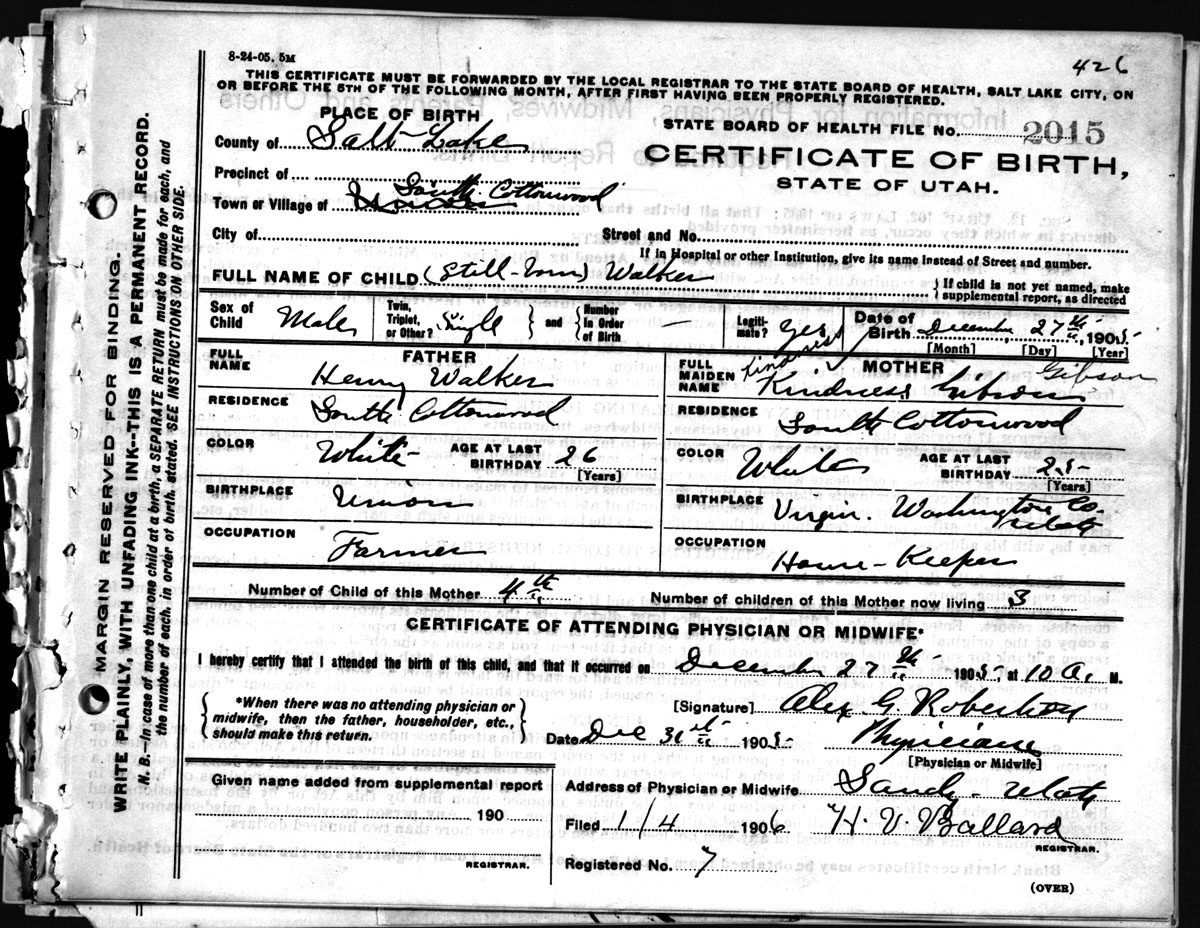 8-24-05. 5M
426
THIS CERTIFICATE MUST BE FORWARDED BY THE LOCAL REGISTRAR TO THE STATE BOARD OF HEALTH, SALT LAKE CITY, ON
OR BEFORE THE 5TH OF THE FOLLOWING MONTH, AFTER FIRST HAVING BEEN PROPERLY REGISTERED.
PLACE OF BIRTH
STATE BOARD OF HEALTH FILE No. 2015
County of Salt Lake
CERTIFICATE OF BIRTH,
STATE OF UTAH.
Precinct of
South Cottonwood
Town or Village of
City of
Street and No.
If in Hospital or other Institution, give its name instead of Street and number.
FULL NAME OF CHILD (Still-born) Walker { If child is not yet named, make
supplemental report, as directed
Sex of
Child Male
Twin,
Triplet,
or Other? Single } and { Number
in Order
of Birth —
Legiti-
mate? Yes
Date of
Birth December, 27th, 1905
[Month] [Day] [Year]
FULL
NAME
FATHER
Henry Walker
FULL
MAIDEN
NAME
Kindness
MOTHER
Gibson
Kindness Gibson
RESIDENCE South Cottonwood
RESIDENCE South Cottonwood
COLOR White
AGE AT LAST
BIRTHDAY 26
[Years]
COLOR White
AGE AT LAST
BIRTHDAY 25
[Years]
BIRTHPLACE Union
BIRTHPLACE Virgin. Washington Co.
Utah
OCCUPATION Farmer
OCCUPATION House-Keeper
Number of Child of this Mother 4th
Number of children of this Mother now living 3
CERTIFICATE OF ATTENDING PHYSICIAN OR MIDWIFE*
I hereby certify that I attended the birth of this child, and that it occurred on December 27th 1905 at 10 a. M.
{ *When there was no attending physician or
midwife, then the father, householder, etc.,
should make this return. }
[Signature] Alex G. Robertson
Date Dec 31st 1905
Physician
[Physician or Midwife]
Given name added from supplemental report
190
REGISTRAR.
Address of Physician or Midwife Sandy - Utah
Filed 1/4 1906 H. V. Ballard
REGISTRAR.
Registered No. 7
(OVER)
MARGIN RESERVED FOR BINDING.
WRITE PLAINLY, WITH UNFADING INK--THIS IS A PERMANENT RECORD.
N. B.—In case of more than one child at a birth, a SEPARATE RETURN must be made for each, and
the number of each, in order of birth, stated. SEE INSTRUCTIONS ON OTHER SIDE.